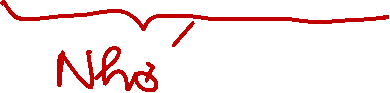 Nhớ